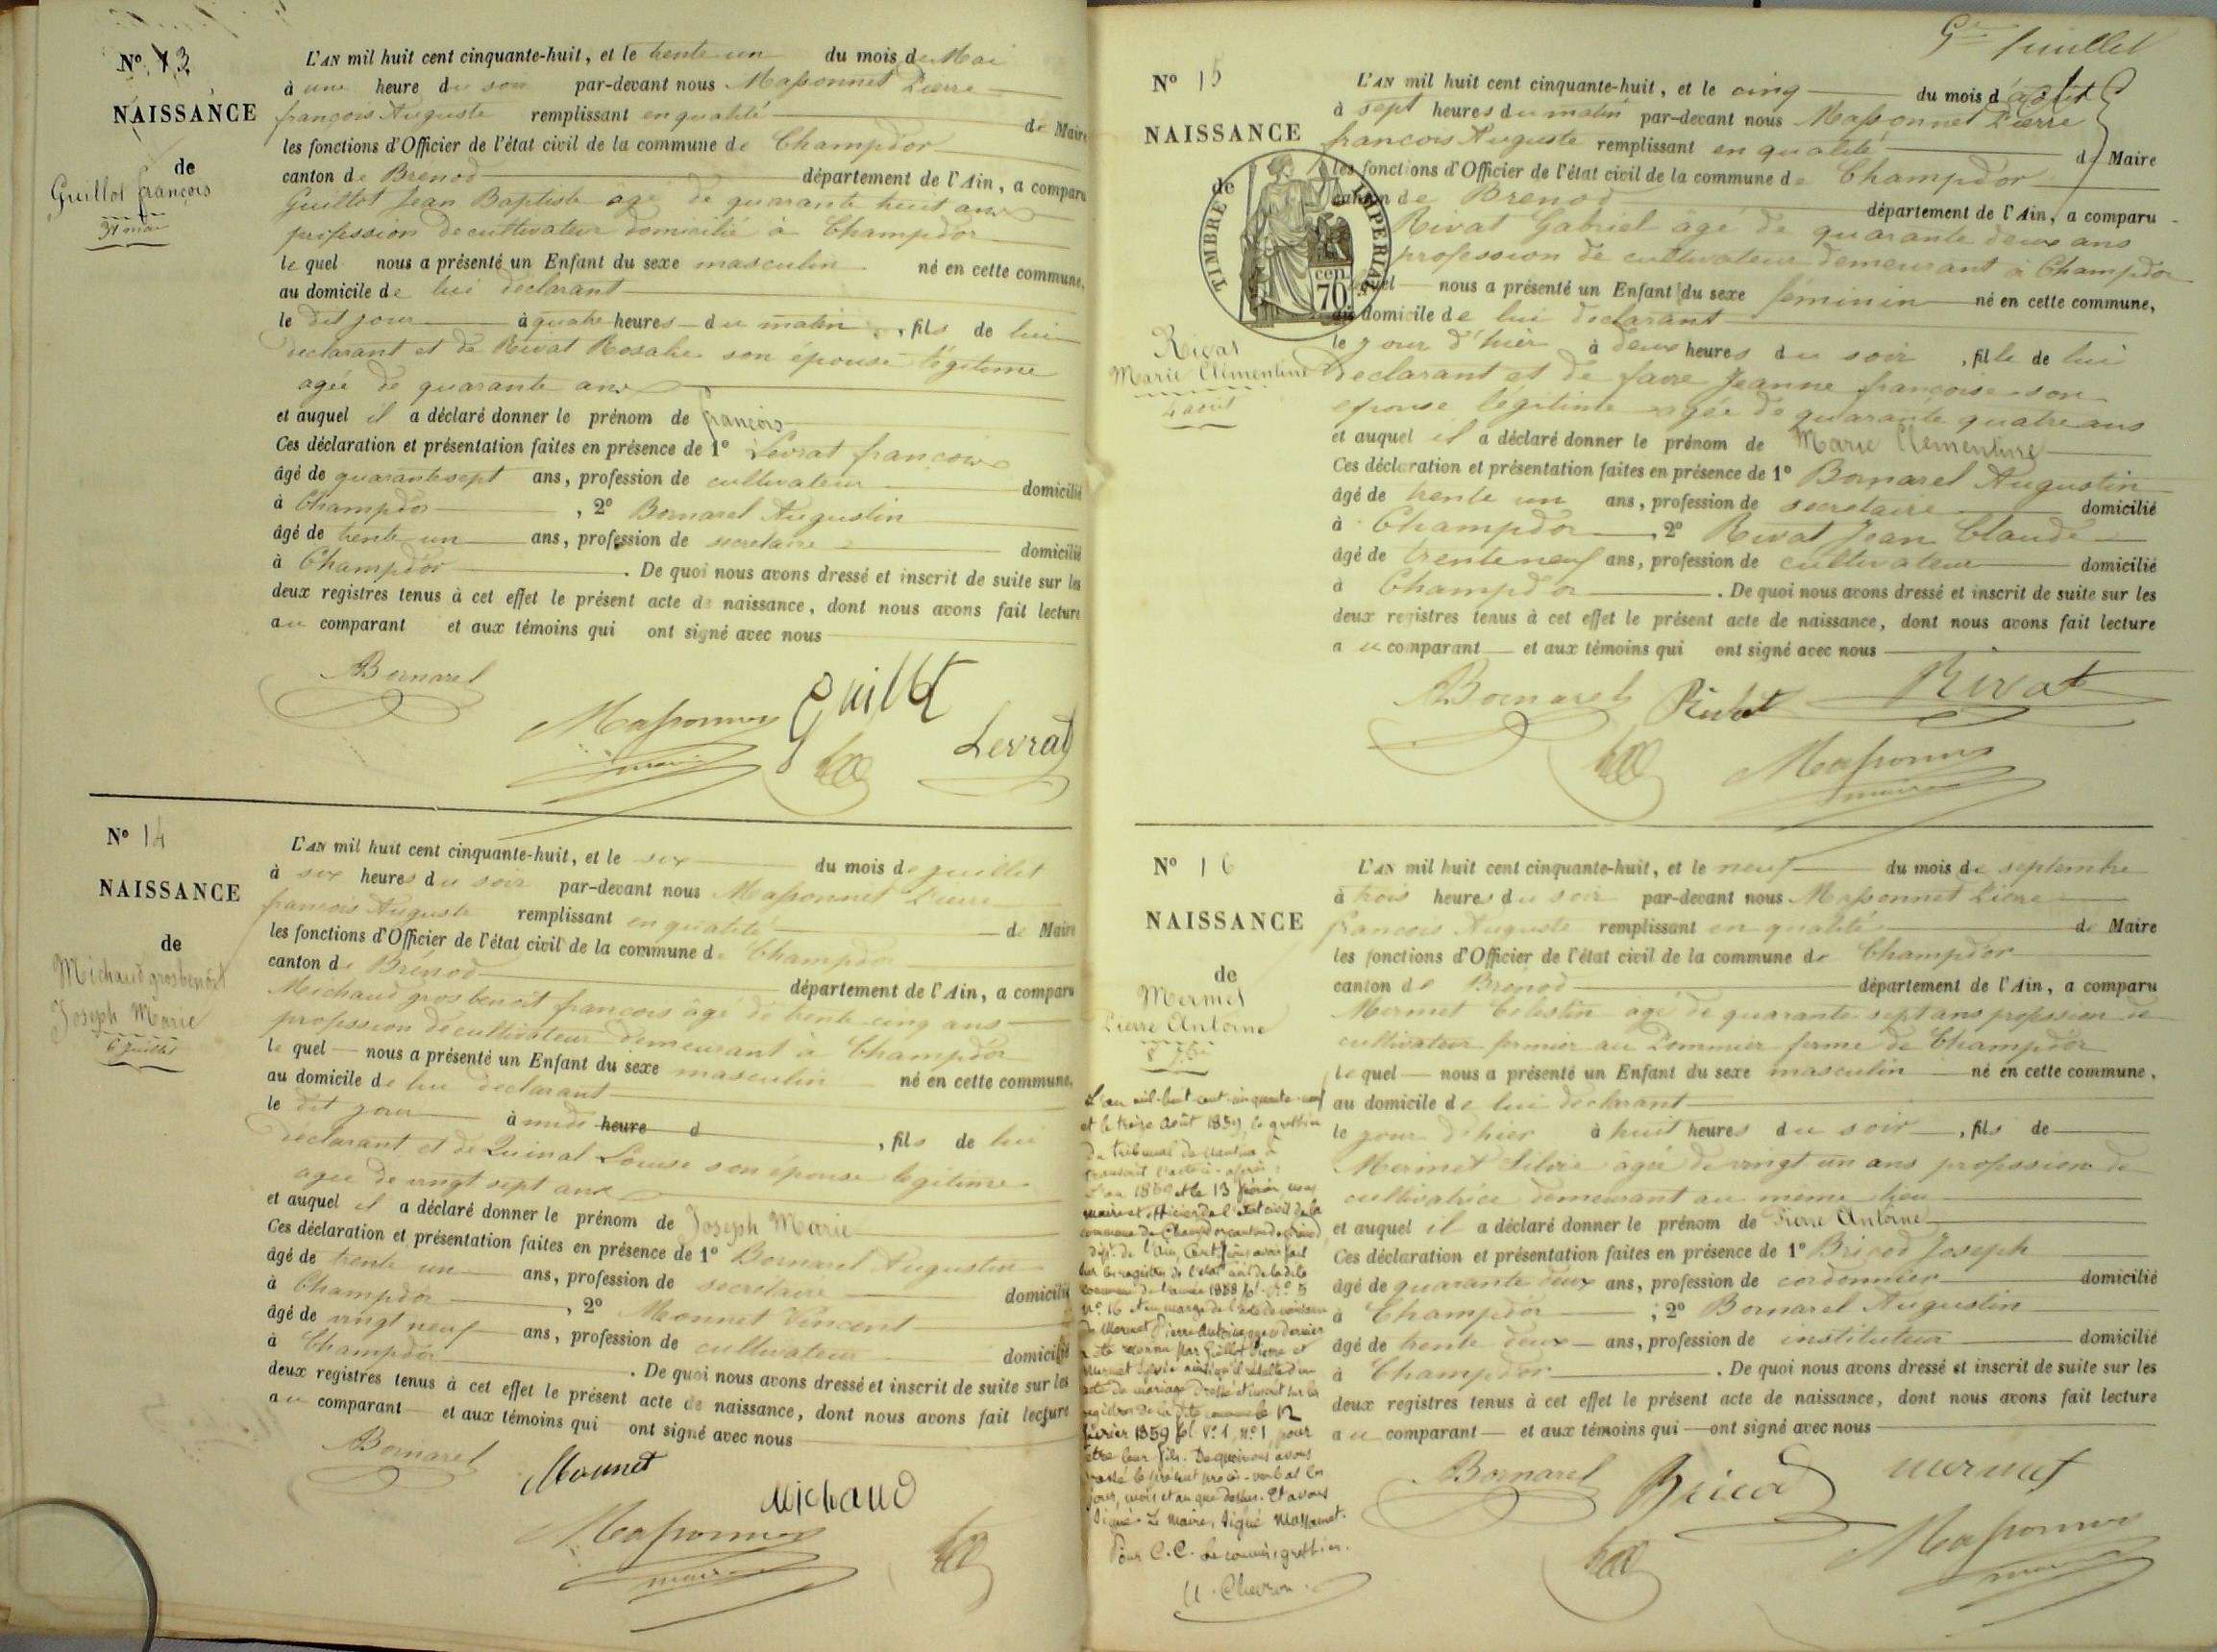 Nº 13
NAISSANCE
de
Guillot françois
31 mai
L'AN mil huit cent cinquante-huit, et le trente un du mois de Mai
à une heure du soir par-devant nous Massonnet Pierre
françois Auguste remplissant en qualité de Maire
les fonctions d'Officier de l'état civil de la commune de Champdor
canton de Brenod département de l'Ain, a comparu
Guillot Jean Baptiste agé de quarante huit ans
profession de cultivateur domicilié à Champdor
le quel nous a présenté un Enfant du sexe masculin né en cette commune,
au domicile de lui declarant
le dit jour à quatre heures du matin, fils de lui
declarant et de Rivat Rosalie son épouse légitime
agée de quarante ans
et auquel il a déclaré donner le prénom de françois
Ces déclaration et présentation faites en présence de 1º Levrat françois
âgé de quarante sept ans, profession de cultivateur domicilié
à Champdor, 2º Bornarel Augustin
âgé de trente un ans, profession de secretaire domicilié
à Champdor. De quoi nous avons dressé et inscrit de suite sur les
deux registres tenus à cet effet le présent acte de naissance, dont nous avons fait lecture
au comparant et aux témoins qui ont signé avec nous
Bornarel
Guillot
Massonnet
maire
Levrat
Nº 14
NAISSANCE
de
Michaud grosbenoit
Joseph Marie
6 juillet
L'AN mil huit cent cinquante-huit, et le six du mois de juillet
à six heures du soir par-devant nous Massonnet Pierre
francois Auguste remplissant en qualité de Maire
les fonctions d'Officier de l'état civil de la commune de Champdor
canton de Brénod département de l'Ain, a comparu
Michaud grosbenoit francois âgé de trente cinq ans
profession de cultivateur demeurant à Champdor
le quel nous a présenté un Enfant du sexe masculin né en cette commune,
au domicile de lui declarant
le dit jour à midi heure d, fils de lui
déclarant et de Quinat Louise son épouse legitime
agée de vingt sept ans
et auquel il a déclaré donner le prénom de Joseph Marie
Ces déclaration et présentation faites en présence de 1º Bornarel Augustin
âgé de trente un ans, profession de secretaire domicilié
à Champdor, 2º Monnet Vincent
âgé de vingt neuf ans, profession de cultivateur domicilié
à Champdor. De quoi nous avons dressé et inscrit de suite sur les
deux registres tenus à cet effet le présent acte de naissance, dont nous avons fait lecture
au comparant et aux témoins qui ont signé avec nous
Bornarel
Monnet
Michaud
Massonnet
maire
juillet
Nº 15
NAISSANCE
de
TIMBRE IMPERIAL
70 cen.
Rivat
Marie Clémentine
4 août
L'AN mil huit cent cinquante-huit, et le cinq du mois d'août
à sept heures du matin par-devant nous Massonnet Pierre
francois Auguste remplissant en qualité de Maire
les fonctions d'Officier de l'état civil de la commune de Champdor
canton de Brenod département de l'Ain, a comparu
Rivat Gabriel âgé de quarante deux ans
profession de cultivateur demeurant a Champdor
quel nous a présenté un Enfant du sexe féminin né en cette commune,
au domicile de lui declarant
le jour d'hier à deux heures du soir, fille de lui
declarant et de favre Jeanne françoise son
epouse legitime agée de quarante quatre ans
et auquel il a déclaré donner le prénom de Marie Clementine
Ces déclaration et présentation faites en présence de 1º Bornarel Augustin
âgé de trente un ans, profession de secretaire domicilié
à Champdor, 2º Rivat Jean Claude
âgé de trente neuf ans, profession de cultivateur domicilié
à Champdor. De quoi nous avons dressé et inscrit de suite sur les
deux registres tenus à cet effet le présent acte de naissance, dont nous avons fait lecture
au comparant et aux témoins qui ont signé avec nous
Bornarel Rivat Rivat
Massonnet
maire
Nº 16
NAISSANCE
de
Mermet
Pierre Antoine
8 7bre
L'an mil huit cent cinquante-neuf
et le treize Août 1859, le greffier
du tribunal de Nantua a
transcrit l'acte ci-après :
L'an 1859 et le 13 février, nous
maire et officier de l'état civil de la
commune de Champdor canton de Brénod
dépt. de l'Ain, Certifions avoir fait
sur les registres de l'état civil de la dite
commune de l'année 1858
nº 16 et en marge de l'acte de naissance
de Mermet Pierre Antoine que ce dernier
a été reconnu par Guillot Pierre et
Mermet Silvie ainsi qu'il résulte d'un
acte de mariage dressé et inscrit sur les
registres de la dite commune le 12
février 1859 fol. Vº 1, nº 1, pour
être leur fils. De quoi nous avons
dressé le présent procès-verbal les
jour, mois et an que dessus. Et avons
signé. Le maire, signé Massonnet.
Pour C.C. Le commis greffier.
Chevron
L'AN mil huit cent cinquante-huit, et le neuf du mois de septembre
à trois heures du soir par-devant nous Massonnet Pierre
francois Auguste remplissant en qualité de Maire
les fonctions d'Officier de l'état civil de la commune de Champdor
canton de Brenod département de l'Ain, a comparu
Mermet Celestin agé de quarante sept ans profession de
cultivateur fermier au Pommier ferme de Champdor
le quel nous a présenté un Enfant du sexe masculin né en cette commune,
au domicile de lui declarant
le jour d'hier à huit heures du soir, fils de
Mermet Silvie âgée de vingt un ans profession de
cultivatrice demeurant au même lieu
et auquel il a déclaré donner le prénom de Pierre Antoine
Ces déclaration et présentation faites en présence de 1º Bricod Joseph
âgé de quarante deux ans, profession de cordonnier domicilié
à Champdor, 2º Bornarel Augustin
âgé de trente deux ans, profession de instituteur domicilié
à Champdor. De quoi nous avons dressé et inscrit de suite sur les
deux registres tenus à cet effet le présent acte de naissance, dont nous avons fait lecture
au comparant et aux témoins qui ont signé avec nous
Bornarel Bricod mermet
Massonnet
maire